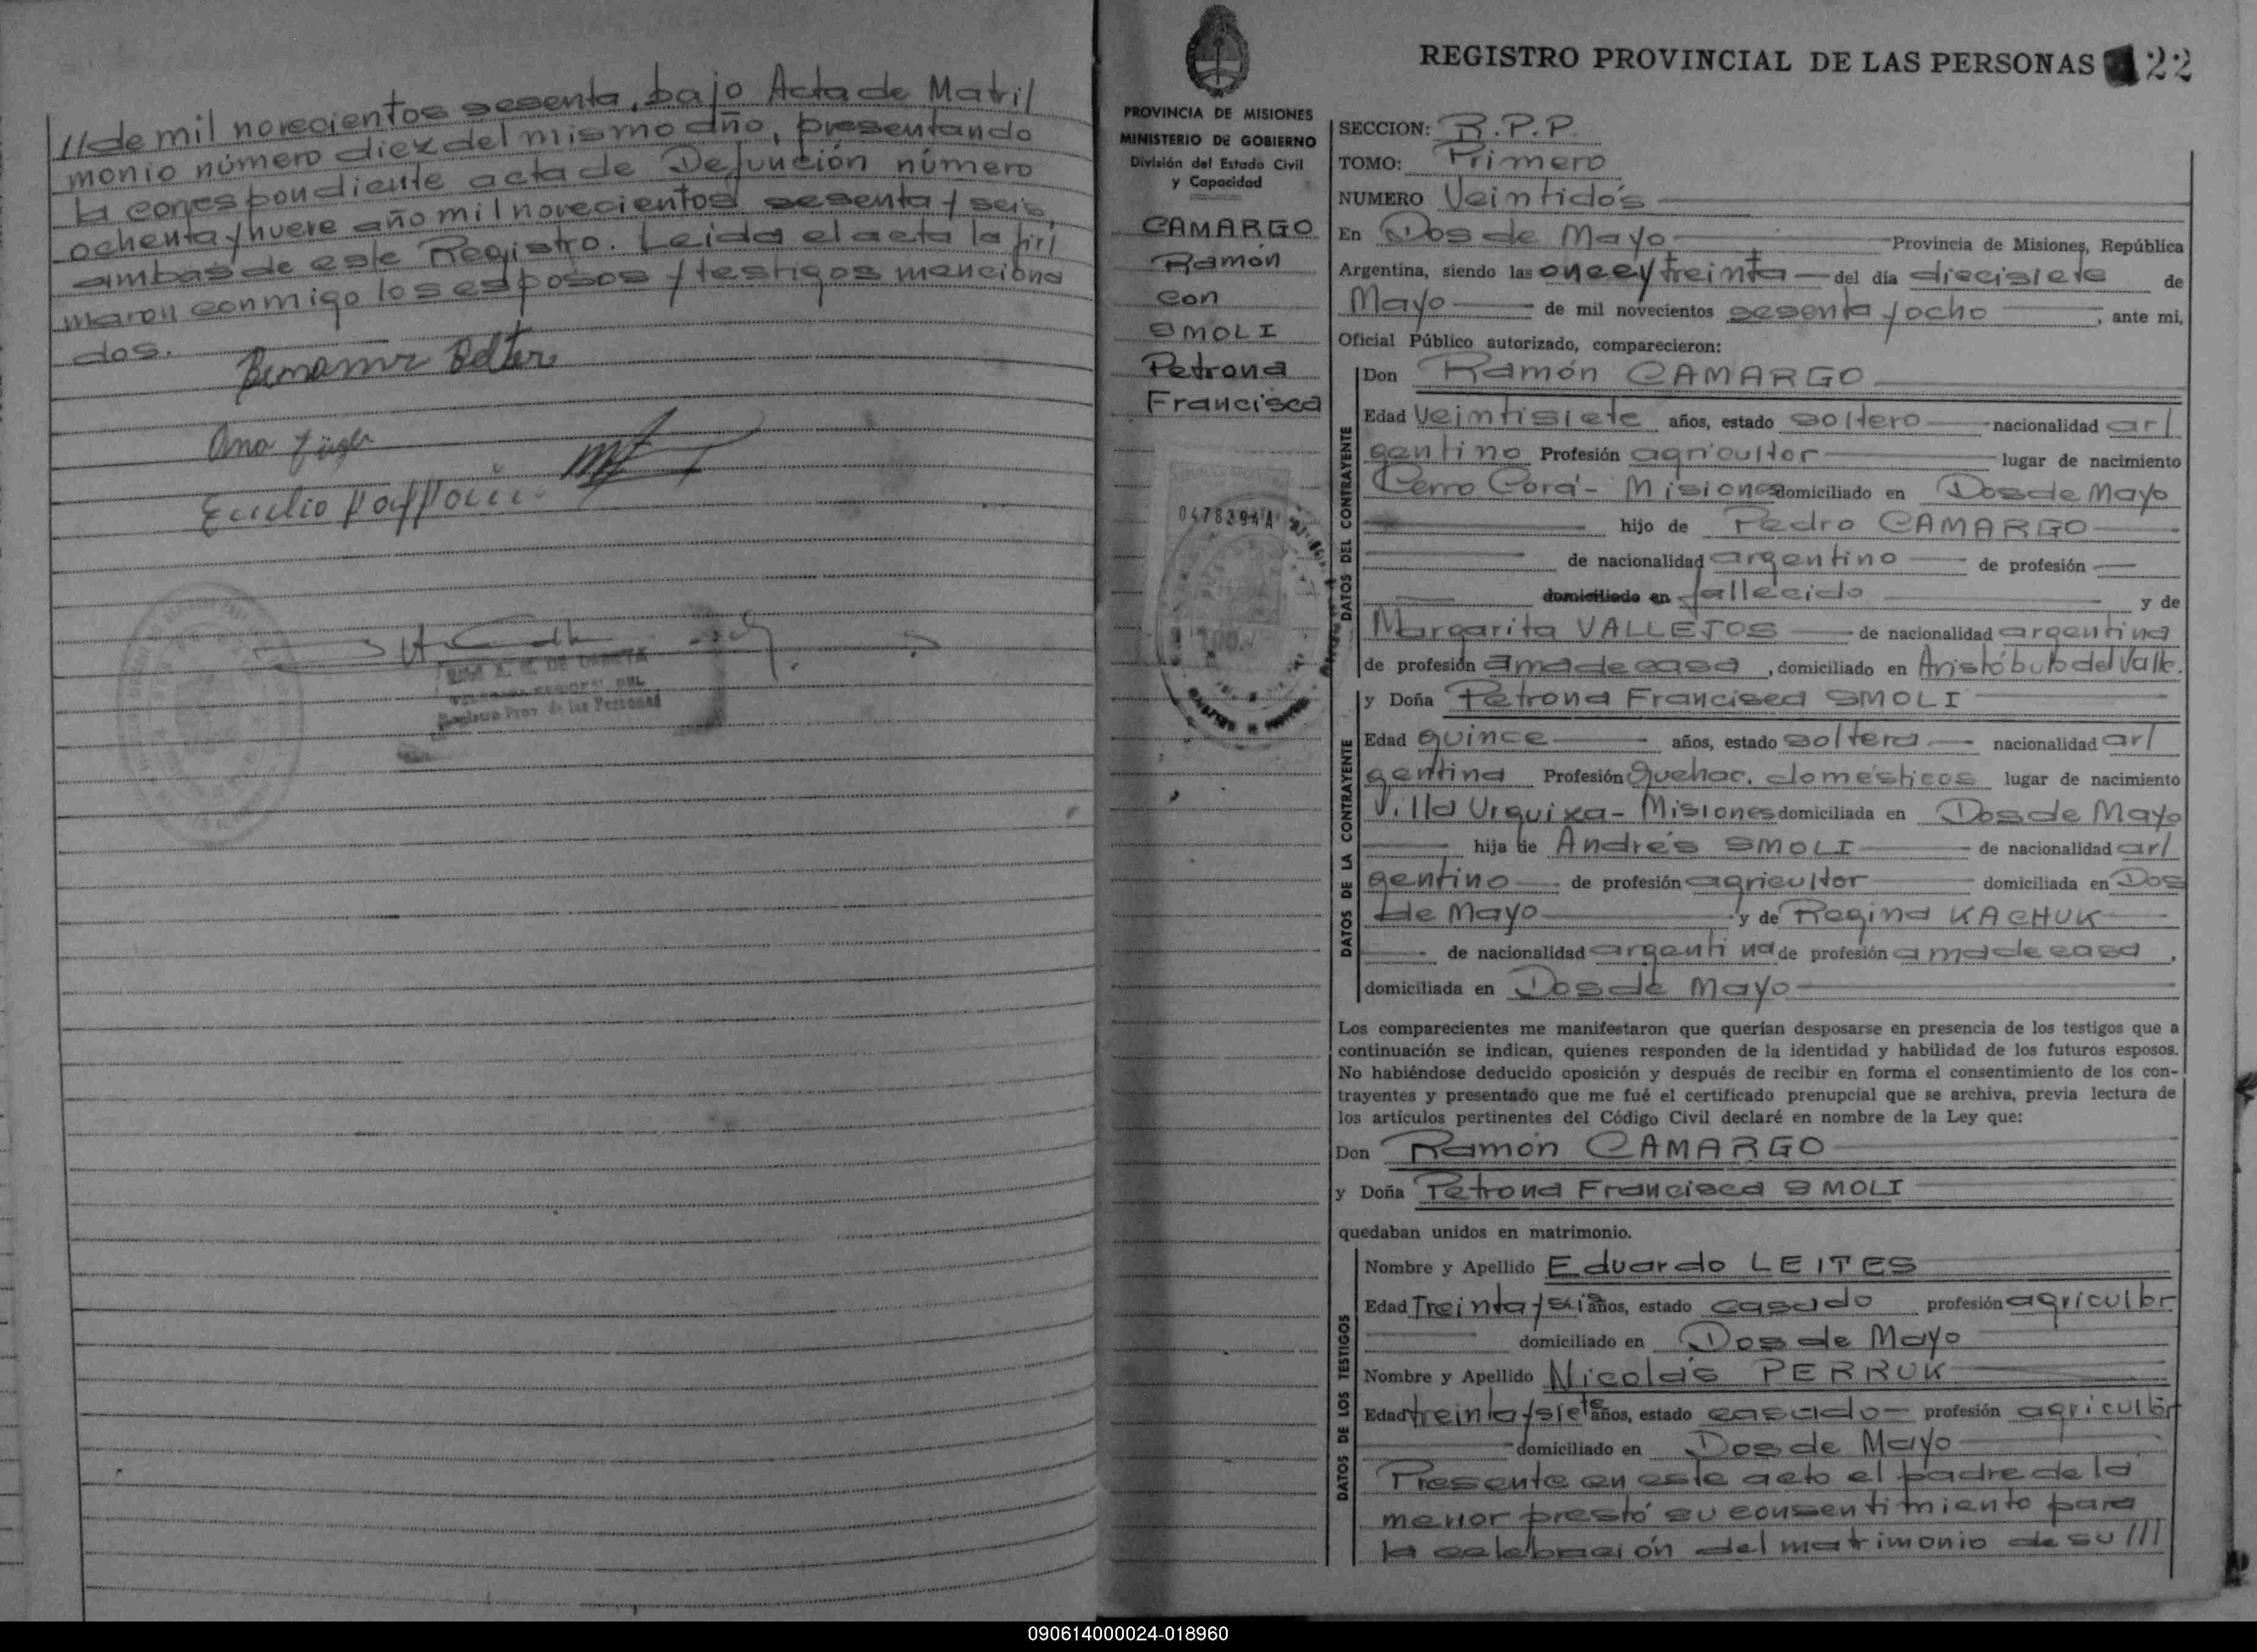 //de mil novecientos sesenta, bajo Acta de Matri/
monio número diez del mismo año, presentando
la correspondiente acta de Defunción número
ochenta y nueve año mil novecientos sesenta y seis,
ambas de este Registro. Leida el acta la fir/
maron conmigo los esposos y testigos menciona
dos.
Ana
Emilio
Registro Prov. de las Personas
REGISTRO PROVINCIAL DE LAS PERSONAS 22
PROVINCIA DE MISIONES
MINISTERIO DE GOBIERNO
División del Estado Civil
y Capacidad
CAMARGO
Ramón
con
SMOLI
Petrona
Francisca
0478394A
100.-
SECCION: R.P.P.
TOMO: Primero
NUMERO Veintidós
En Dos de Mayo Provincia de Misiones, República
Argentina, siendo las once y treinta del día diecisiete de
Mayo de mil novecientos sesenta y ocho, ante mi,
Oficial Público autorizado, comparecieron:
DATOS DEL CONTRAYENTE
Don Ramón CAMARGO
Edad veintisiete años, estado soltero nacionalidad ar/
gentino Profesión agricultor lugar de nacimiento
Cerro Corá - Misiones domiciliado en Dos de Mayo
hijo de Pedro CAMARGO
de nacionalidad argentino de profesión
domiciliado en fallecido y de
Margarita VALLEJOS de nacionalidad argentina
de profesión ama de casa, domiciliado en Aristóbulo del Valle.
DATOS DE LA CONTRAYENTE
y Doña Petrona Francisca SMOLI
Edad quince años, estado soltera nacionalidad ar/
gentina Profesión Quehac. domésticos lugar de nacimiento
Villa Urquiza - Misiones domiciliada en Dos de Mayo
hija de Andrés SMOLI de nacionalidad ar/
gentino de profesión agricultor domiciliada en Dos
de Mayo y de Regina KACHUK
de nacionalidad argentina de profesión ama de casa,
domiciliada en Dos de Mayo
Los comparecientes me manifestaron que querían desposarse en presencia de los testigos que a
continuación se indican, quienes responden de la identidad y habilidad de los futuros esposos.
No habiéndose deducido oposición y después de recibir en forma el consentimiento de los con-
trayentes y presentado que me fué el certificado prenupcial que se archiva, previa lectura de
los artículos pertinentes del Código Civil declaré en nombre de la Ley que:
Don Ramón CAMARGO
y Doña Petrona Francisca SMOLI
quedaban unidos en matrimonio.
DATOS DE LOS TESTIGOS
Nombre y Apellido Eduardo LEITES
Edad Treinta y seis años, estado casado profesión agricultor
domiciliado en Dos de Mayo
Nombre y Apellido Nicolás PERRUK
Edad treinta y siete años, estado casado profesión agricultor
domiciliado en Dos de Mayo
Presente en este acto el padre de la
menor prestó su consentimiento para
la celebración del matrimonio de su ///
090614000024-018960